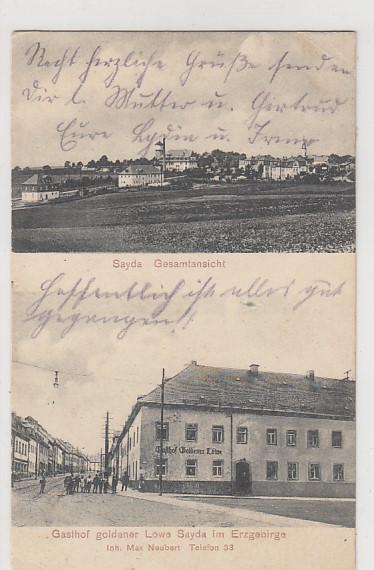 Recht herzliche Grüße senden
Dir l. Mutter u. Gertrud
Eure Lydia u. Irma
Sayda Gesamtansicht
Hoffentlich ist alles gut
gegangen!
Gasthof Goldener Löwe
Gasthof goldener Löwe Sayda im Erzgebirge
Inh. Max Neubert Telefon 33